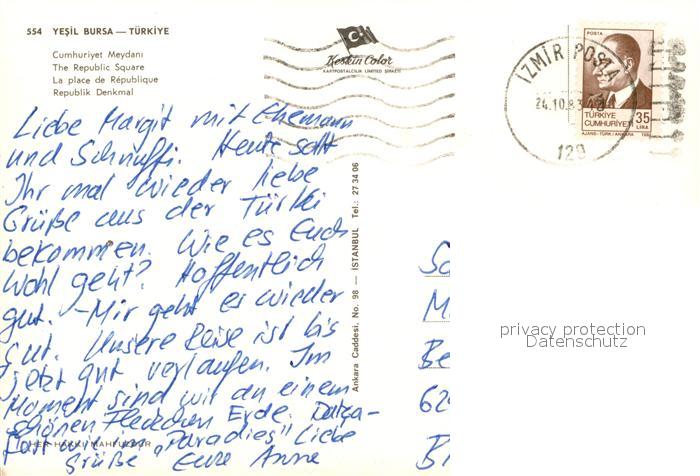 554 YEŞİL BURSA — TÜRKİYE
Cumhuriyet Meydanı
The Republic Square
La place de République
Republik Denkmal
Keskin Color
KARTPOSTALCILIK LIMITED ŞİRKETİ
İZMİR POSTA
24.10.83
129
POSTA
TÜRKİYE
CUMHURİYETİ
35
LİRA
AJANS-TÜRK/ANKARA
Liebe Margit mit Ehemann
und Schnuffi. Heute sollt
Ihr mal wieder liebe
Grüße aus der Türkei
bekommen. Wie es Euch
wohl geht? Hoffentlich
gut. - Mir geht es wieder
gut. Unsere Reise ist bis
jetzt gut verlaufen. Im
Moment sind wir an einem
schönen Fleckchen Erde. Datça-
fast wie im "Paradies" Liebe
Grüße Eure Anne
HER HAKKI MAHFUZDUR
Ankara Caddesi, No. 98 — İSTANBUL Tel.: 27 34 06
Sc
M
Be
62
B
privacy protection
Datenschutz